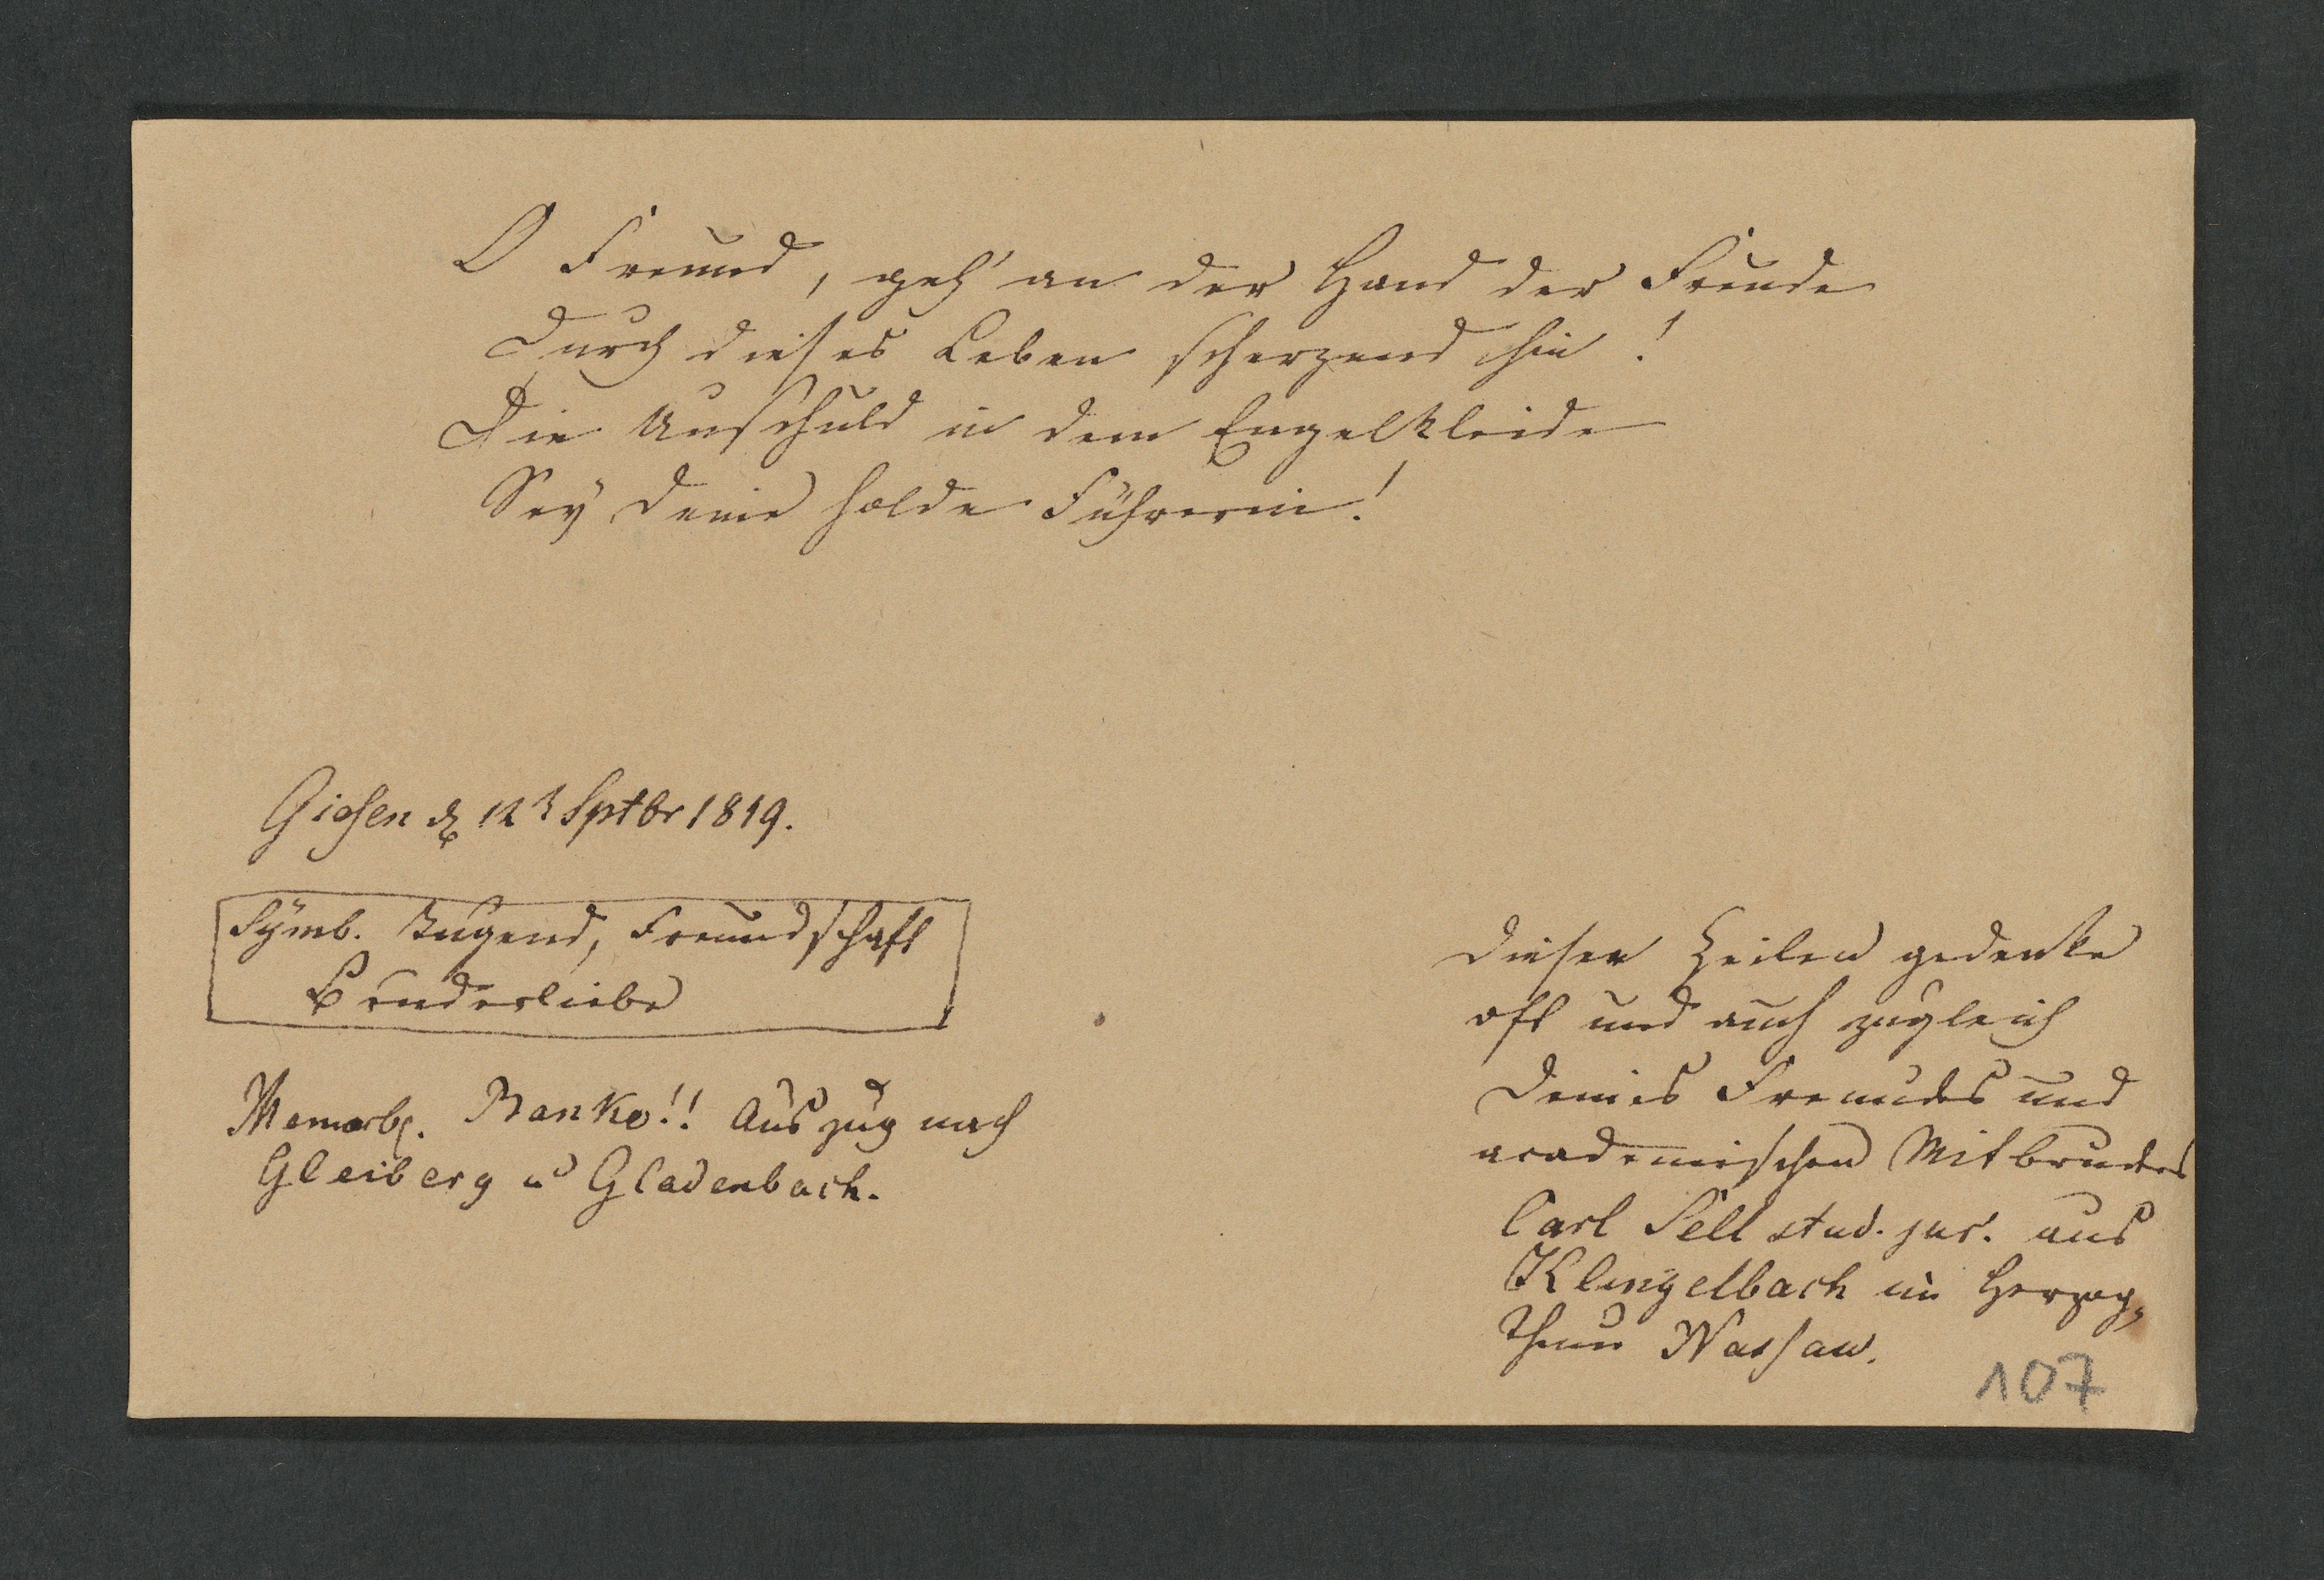 O Freund, geh' an der Hand der Freude
Durch dieses Leben scherzend hin!
Die Unschuld in dem Engelkleide
Sey deine holde Führerin!
Giesen d 12 Sptbr 1819.
Symb. Tugend, Freundschaft
Bruderliebe
Memorb. Banko!! Auszug nach
Gleiberg u Gladenbach.
Dieser Zeilen gedenke
oft und auch zugleich
Deines Freundes und
academischen Mitbruders
Carl Sell stud. jur. aus
Klingelbach im Herzog
thum Nassau.
107